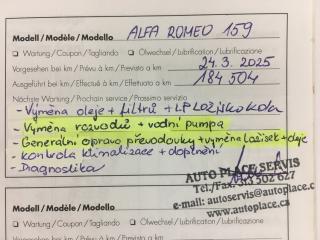 Modell / Modèle / Modello ALFA ROMEO 159
☐ Wartung / Coupon / Tagliando ☐ Ölwechsel / Lubrification / Lubrificazione
Vorgesehen bei km / Prévu à km / Previsto a km 24.3.2025
Ausgeführt bei km / Effectué à / Effettuato a 184 504
Nächste Wartung / Prochain service / Prossimo servizio
- Výměna oleje + filtrů + LP Ložisko kola
- Výměna rozvodů + vodní pumpa
- Generalní oprava převodovky + výměna ložisek + oleje
- Kontrola klimatizace + doplnění
- Diagnostika
AUTO PLACE SERVIS
Tel./Fax: 313 502 027
e-mail: autoservis@autoplace.
www.autoplace.cz
Modell / Modèle / Modello
☐ Wartung / Coupon / Tagliando ☐ Ölwechsel / Lubrification / Lubrificazione